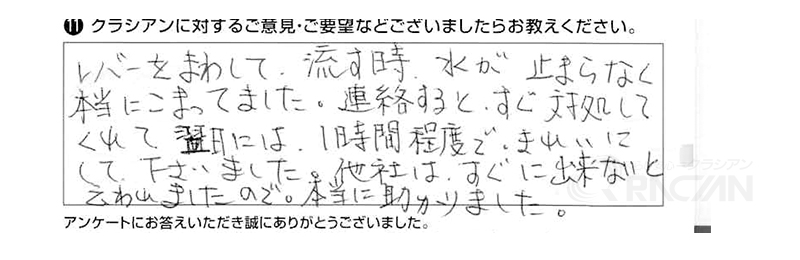 ⑪ クラシアンに対するご意見・ご要望などございましたらお教えください。
レバーをまわして、流す時、水が止まらなく
本当にこまってました。連絡すると、すぐ対処して
くれて翌日には、1時間程度で、きれいに
して下さいました。他社は、すぐに出来ないと
云われましたので。本当に助かりました。
アンケートにお答えいただき誠にありがとうございました。
クラシアン
CRACIAN